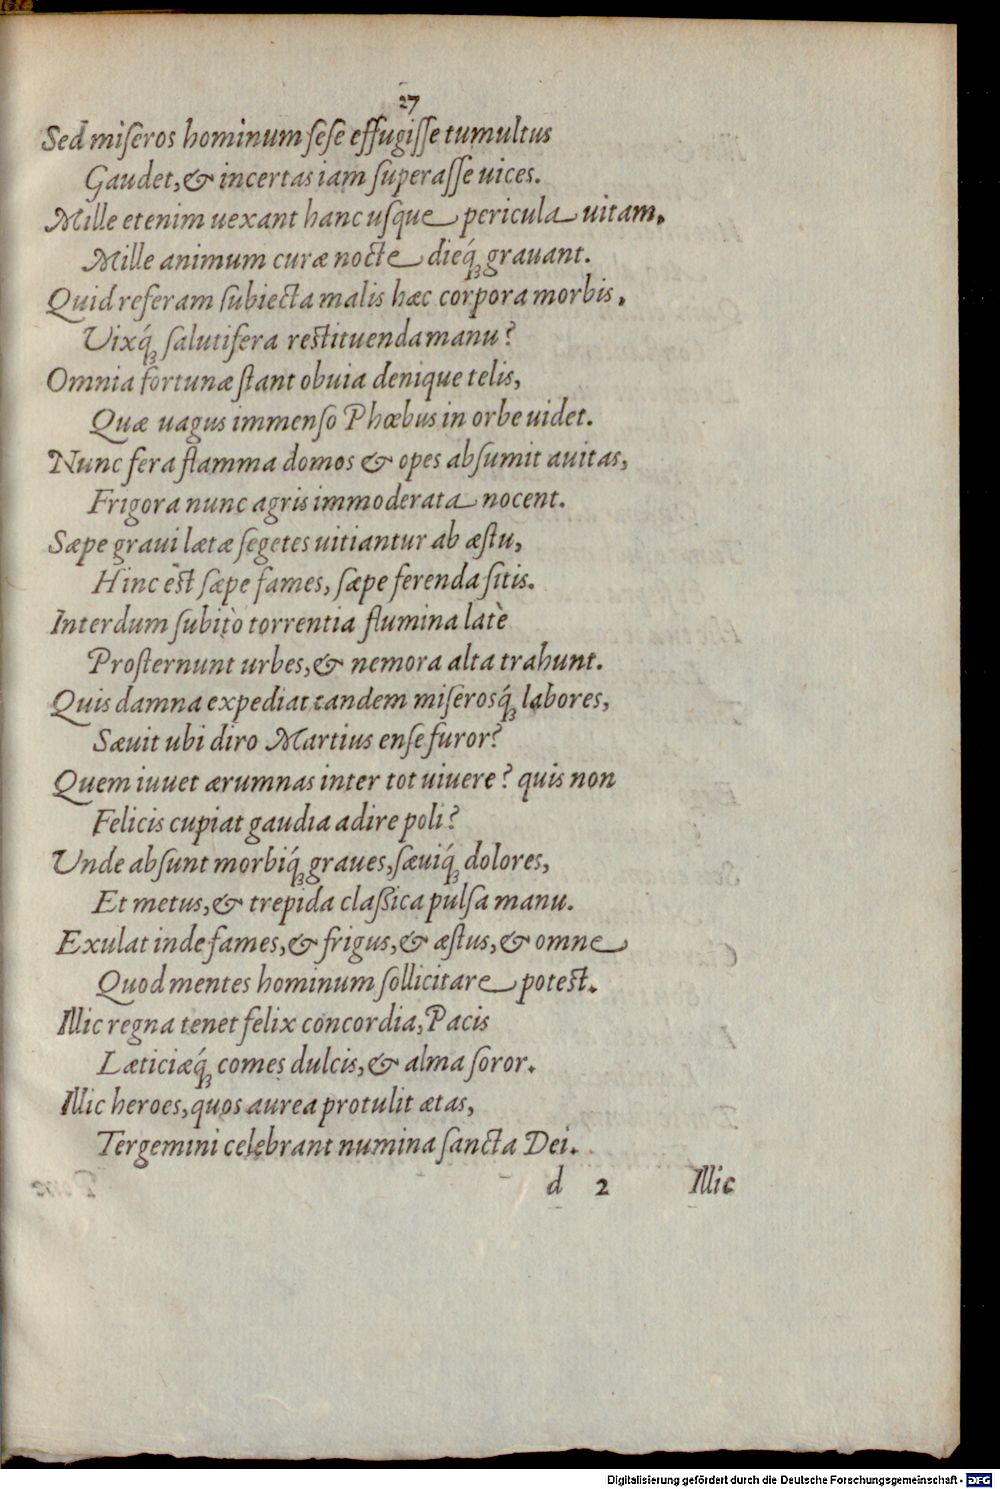 27
Sed miſeros hominum ſeſe effugiſſe tumultus
Gaudet, & incertas iam ſuperaſſe uices.
Mille etenim uexant hanc uſque pericula uitam.
Mille animum curæ nocte dieq́ꝫ grauant.
Quid referam ſubiecta malis hæc corpora morbis.
Uixq́ꝫ ſalutifera reſtituenda manu?
Omnia fortunæ ſtant obuia denique telis,
Quæ uagus immenſo Phœbus in orbe uidet.
Nunc fera flamma domos & opes abſumit auitas,
Frigora nunc agris immoderata nocent.
Sæpe graui lætæ ſegetes uitiantur ab æſtu,
Hinc eſt ſæpe fames, ſæpe ferenda ſitis.
Interdum ſubitò torrentia flumina latè
Proſternunt urbes, & nemora alta trahunt.
Quis damna expediat tandem miſerosq́ꝫ labores,
Sæuit ubi diro Martius enſe furor?
Quem iuuet ærumnas inter tot uiuere? quis non
Felicis cupiat gaudia adire poli?
Unde abſunt morbiq́ꝫ graues, ſæuiq́ꝫ dolores,
Et metus, & trepida claſsica pulſa manu.
Exulat inde fames, & frigus, & æſtus, & omne
Quod mentes hominum ſollicitare poteſt.
Illic regna tenet felix concordia, Pacis
Læticiæq́ꝫ comes dulcis, & alma ſoror.
Illic heroes, quos aurea protulit ætas,
Tergemini celebrant numina ſancta Dei.
d 2 Illic
Digitalisierung gefördert durch die Deutsche Forschungsgemeinschaft - DFG